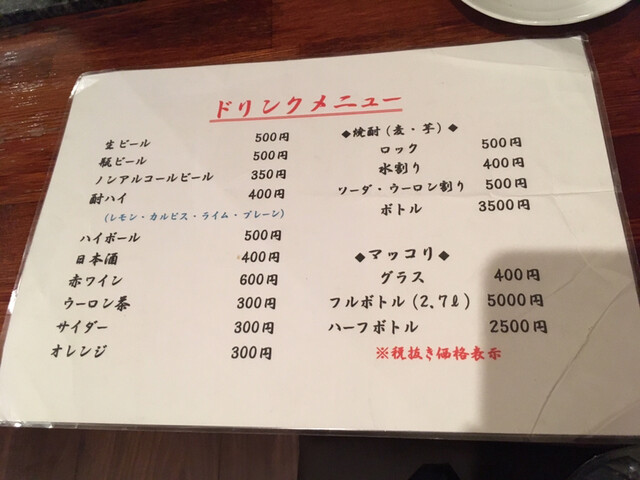 ドリンクメニュー
生ビール 500円
瓶ビール 500円
ノンアルコールビール 350円
酎ハイ 400円
(レモン・カルピス・ライム・プレーン)
ハイボール 500円
日本酒 400円
赤ワイン 600円
ウーロン茶 300円
サイダー 300円
オレンジ 300円
◆焼酎(麦・芋)◆
ロック 500円
水割り 400円
ソーダ・ウーロン割り 500円
ボトル 3500円
◆マッコリ◆
グラス 400円
フルボトル(2,7ℓ) 5000円
ハーフボトル 2500円
※税抜き価格表示